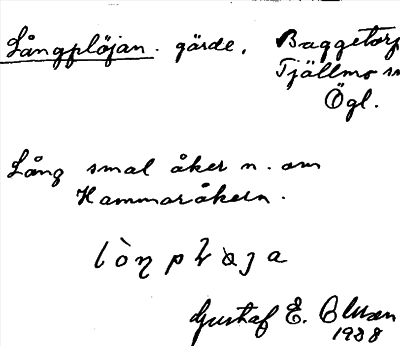 Långplöjan. gärde. Baggetorp
Tjällmo sn
Ögl.
Lång smal åker n. om
Hammaråkern.
Gustaf E. Olsson
1938